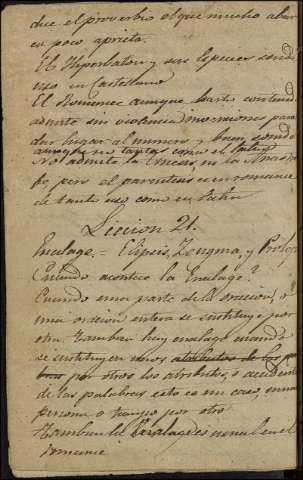 dice el proverbio el que mucho abar
ca poco aprieta.
El Hiperbaton y sus especies son de
uso en Castellano
El Romance aunque harto contenido
admite sin violencia inversiones para
dar lugar al numero y buen sonido
aunque no tantas como el Latin
No admite la Tmesis ni la Anas
fe, pero el parentesis en romance
es tanto uso como en Latin
Leccion 21.
Enalage, = Elipsis, Zeugma, y Prolep
Cuando acontece la Enalage?
Cuando una parte de la oracion, o
una oracion entera se sustituye por
otra. Tambien hay enalage cuando
se sustituyen unos atributos de las pa
labras por otros los atributos, o accidentes
de las palabras esto es un caso, una
persona o tiempo por otro
Tambien la Enalage es usual en el
romance